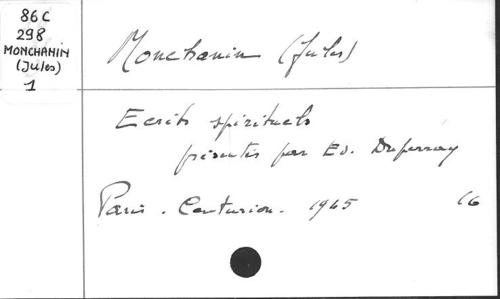 86C
298
MONCHANIN
(Jules)
1
Monchanin (Jules)
Ecrits spirituels
présentés par Ed. Duperray
Paris. Centurion. 1965
16